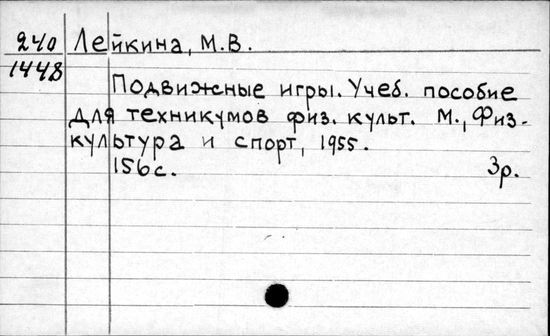 240 Лейкина, М.В.
1448
Подвижные игры. Учеб. пособие
для техникумов физ. культ. М., Физ-
культура и спорт, 1955.
156с. 3р.